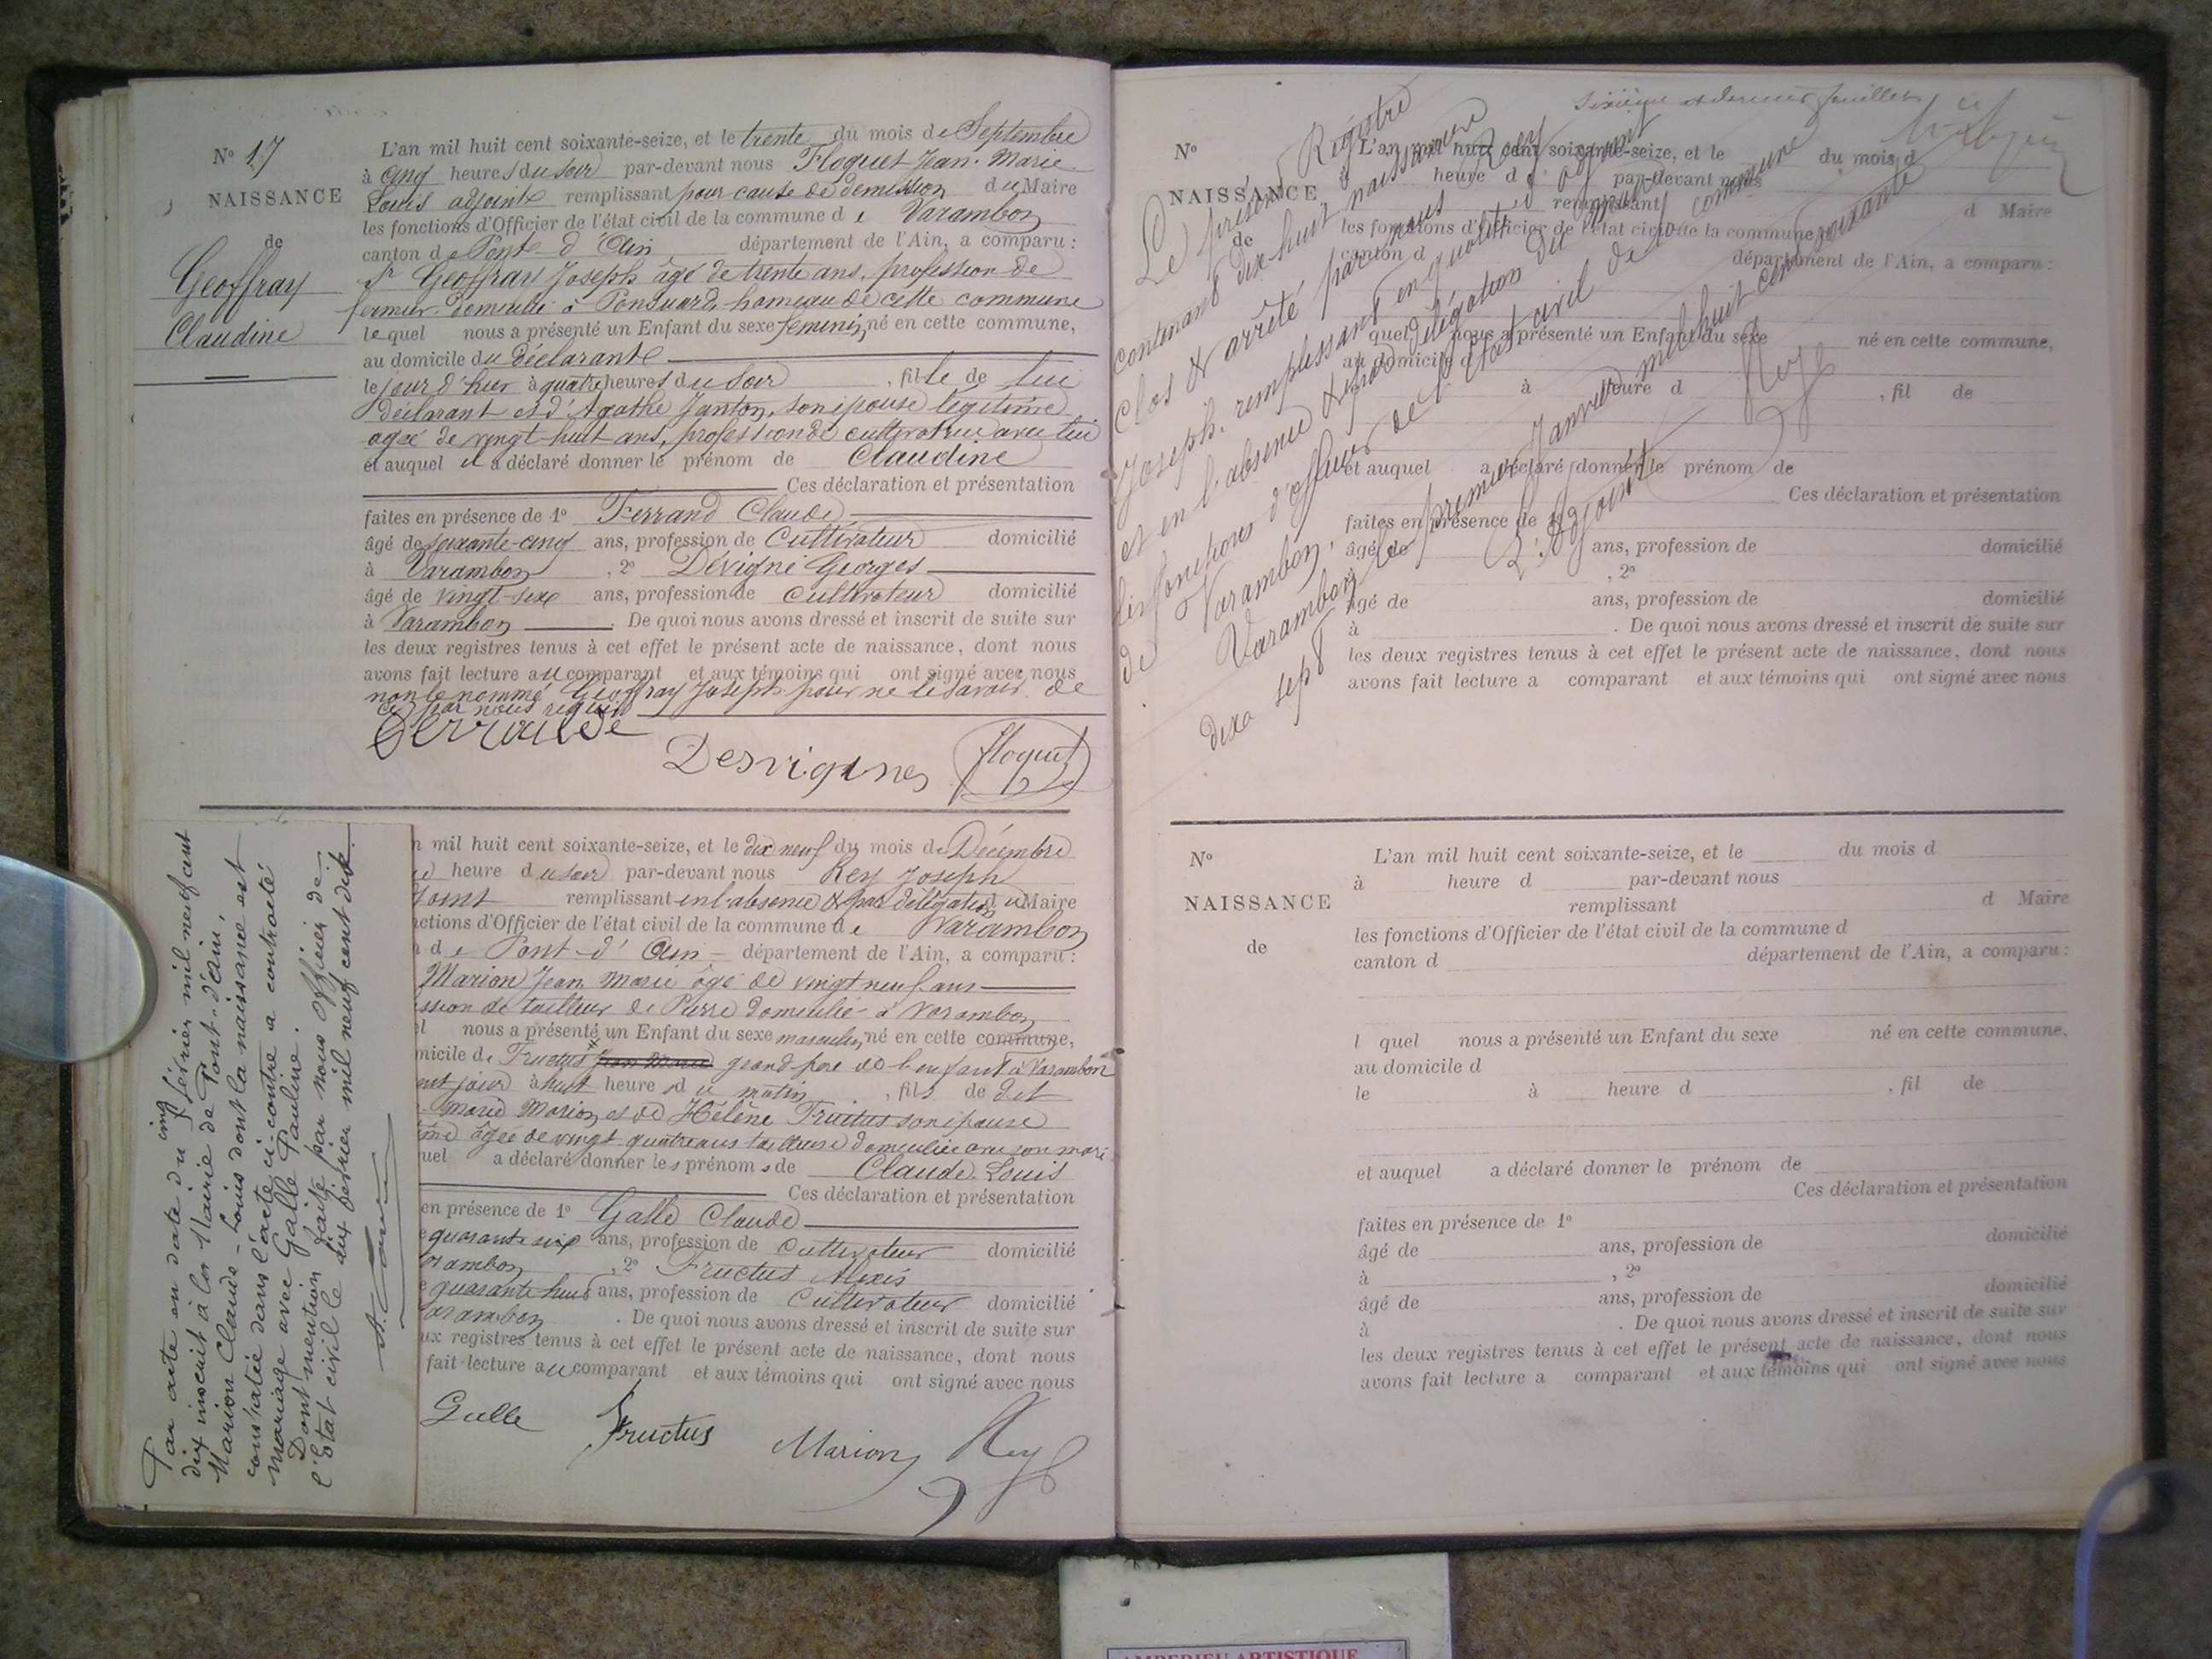 N° 17
NAISSANCE
de
Geoffray
Claudine
L'an mil huit cent soixante-seize, et le trente du mois de Septembre
à cinq heures du soir par-devant nous Floquet Jean-Marie
Louis adjoint remplissant pour cause de démission du Maire
les fonctions d'Officier de l'état civil de la commune de Varambon
canton de Pont-d'Ain département de l'Ain, a comparu :
sr Geoffray Joseph âgé de trente ans, profession de
fermier domicilié à Ponsuard hameau de cette commune
lequel nous a présenté un Enfant du sexe feminin, né en cette commune,
au domicile du déclarant
le jour d'hier à quatre heures du soir, fille de lui
déclarant et d'Agathe Janton, son épouse légitime
agée de vingt-huit ans, profession de cultivatrice avec lui
et auquel il a déclaré donner le prénom de Claudine
Ces déclaration et présentation
faites en présence de 1° Ferrand Claude
âgé de soixante-cinq ans, profession de Cultivateur domicilié
à Varambon, 2° Dévigne Georges
âgé de vingt-six ans, profession de cultivateur domicilié
à Varambon. De quoi nous avons dressé et inscrit de suite sur
les deux registres tenus à cet effet le présent acte de naissance, dont nous
avons fait lecture au comparant et aux témoins qui ont signé avec nous
non le nommé Geoffray Joseph pour ne le savoir de
ce par nous requis
Desvignes Floquet
n mil huit cent soixante-seize, et le dix neuf du mois de Décembre
heure du soir par-devant nous Rey Joseph
joint remplissant en l'absence & par délégation du Maire
nctions d'Officier de l'état civil de la commune de Varambon
n de Pont-d'Ain département de l'Ain, a comparu :
Marion Jean Marie âgé de vingt neuf ans
ession de tailleur de Pierre domicilié à Varambon
el nous a présenté un Enfant du sexe masculin, né en cette commune,
micile de Fructus grand père de l'enfant à Varambon
jour à huit heures du matin, fils de dit
Marie Marion et de Hélène Fructus son épouse
âgée de vingt quatre ans domiciliée avec son mari
uel a déclaré donner les prénoms de Claude Louis
Ces déclaration et présentation
en présence de 1° Galle Claude
e quarante six ans, profession de Cultivateur domicilié
arambon, 2° Fructus Alexis
e quarante huit ans, profession de Cultivateur domicilié
arambon. De quoi nous avons dressé et inscrit de suite sur
ux registres tenus à cet effet le présent acte de naissance, dont nous
fait lecture au comparant et aux témoins qui ont signé avec nous
Galle Fructus Marion Rey
Par acte en date du cinq février mil neuf cent
dix inscrit à la Mairie de Pont-d'Ain,
Marion Claude-Louis dont la naissance est
constatée dans l'acte ci-contre a contracté
mariage avec Galle Pauline.
Dont mention faite par nous officier de
l'Etat civil le dix février mil neuf cent dix.
Sixième et dernier feuillet
Le présent Registre
contenant dix-huit naissances
clos & arrêté par nous Rey
Joseph, remplissant en qualité d'adjoint
et en l'absence & par délégation du maire
les fonctions d'officier de l'état civil de la commune
de Varambon,
Varambon le premier Janvier mil huit cent soixante
dix sept
L'Adjoint
Rey
N°
NAISSANCE
de
L'an mil huit cent soixante-seize, et le du mois d
à heure d par-devant nous
remplissant d Maire
les fonctions d'Officier de l'état civil de la commune d
canton d département de l'Ain, a comparu :
l quel nous a présenté un Enfant du sexe né en cette commune,
au domicile d
le à heure d , fil de
et auquel a déclaré donner le prénom de
Ces déclaration et présentation
faites en présence de 1°
âgé de ans, profession de domicilié
à , 2°
âgé de ans, profession de domicilié
à . De quoi nous avons dressé et inscrit de suite sur
les deux registres tenus à cet effet le présent acte de naissance, dont nous
avons fait lecture a comparant et aux témoins qui ont signé avec nous
N°
NAISSANCE
de
L'an mil huit cent soixante-seize, et le du mois d
à heure d par-devant nous
remplissant d Maire
les fonctions d'Officier de l'état civil de la commune d
canton d département de l'Ain, a comparu :
l quel nous a présenté un Enfant du sexe né en cette commune.
au domicile d
le à heure d , fil de
et auquel a déclaré donner le prénom de
Ces déclaration et présentation
faites en présence de 1°
âgé de ans, profession de domicilié
à , 2°
âgé de ans, profession de domicilié
à . De quoi nous avons dressé et inscrit de suite sur
les deux registres tenus à cet effet le présent acte de naissance, dont nous
avons fait lecture a comparant et aux témoins qui ont signé avec nous